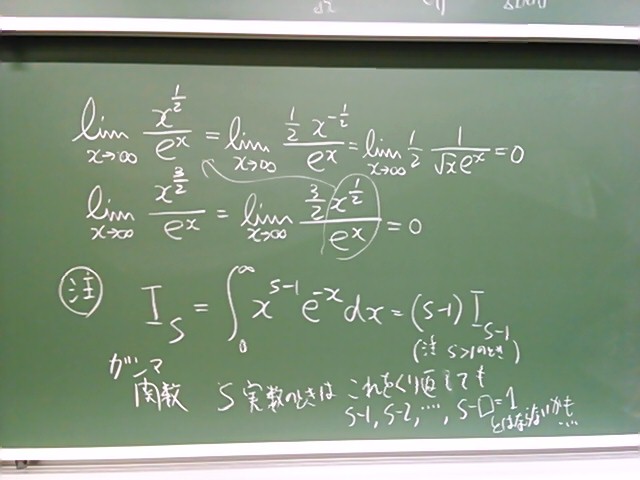 lim_{x→∞} x^{1/2}/e^x = lim_{x→∞} (1/2 x^{-1/2})/e^x = lim_{x→∞} 1/2 1/(√x e^x) = 0
lim_{x→∞} x^{3/2}/e^x = lim_{x→∞} (3/2 x^{1/2})/e^x = 0
注 I_S = ∫_0^∞ x^{s-1} e^{-x} dx = (s-1) I_{s-1}
(注 s>1のとき)
ガンマ
関数 S 実数のときは これをくり返しても
s-1, s-2, …, s-□=1
とはならないかも…